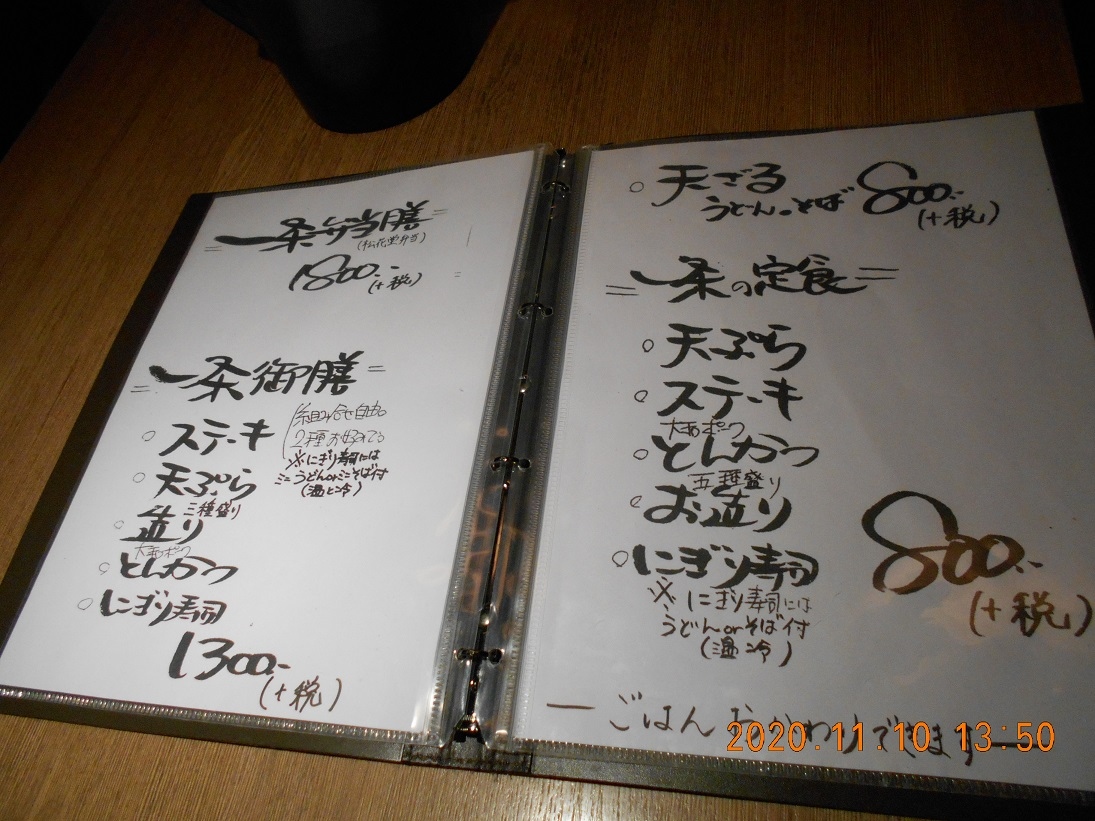 一条弁当膳
(松花堂弁当)
1800.-
(+税)
一条御膳
○ ステーキ
○ 天ぷら
三種盛り
○ 造り
大あおポーク
○ とんかつ
○ にぎり寿司
組み合せ自由。
2種お好みで
※にぎり寿司には
ミニうどんorミニそば付
(温と冷)
1300.-
(+税)
○ 天ざる
うどん。そば
800.-
(+税)
一条の定食
○ 天ぷら
○ ステーキ
○ とんかつ
五種盛り
○ お造り
○ にぎり寿司
※ にぎり寿司には
うどんorそば付
(温 冷)
800.-
(+税)
ー ごはん おかわりできます ー
2020.11.10 13:50